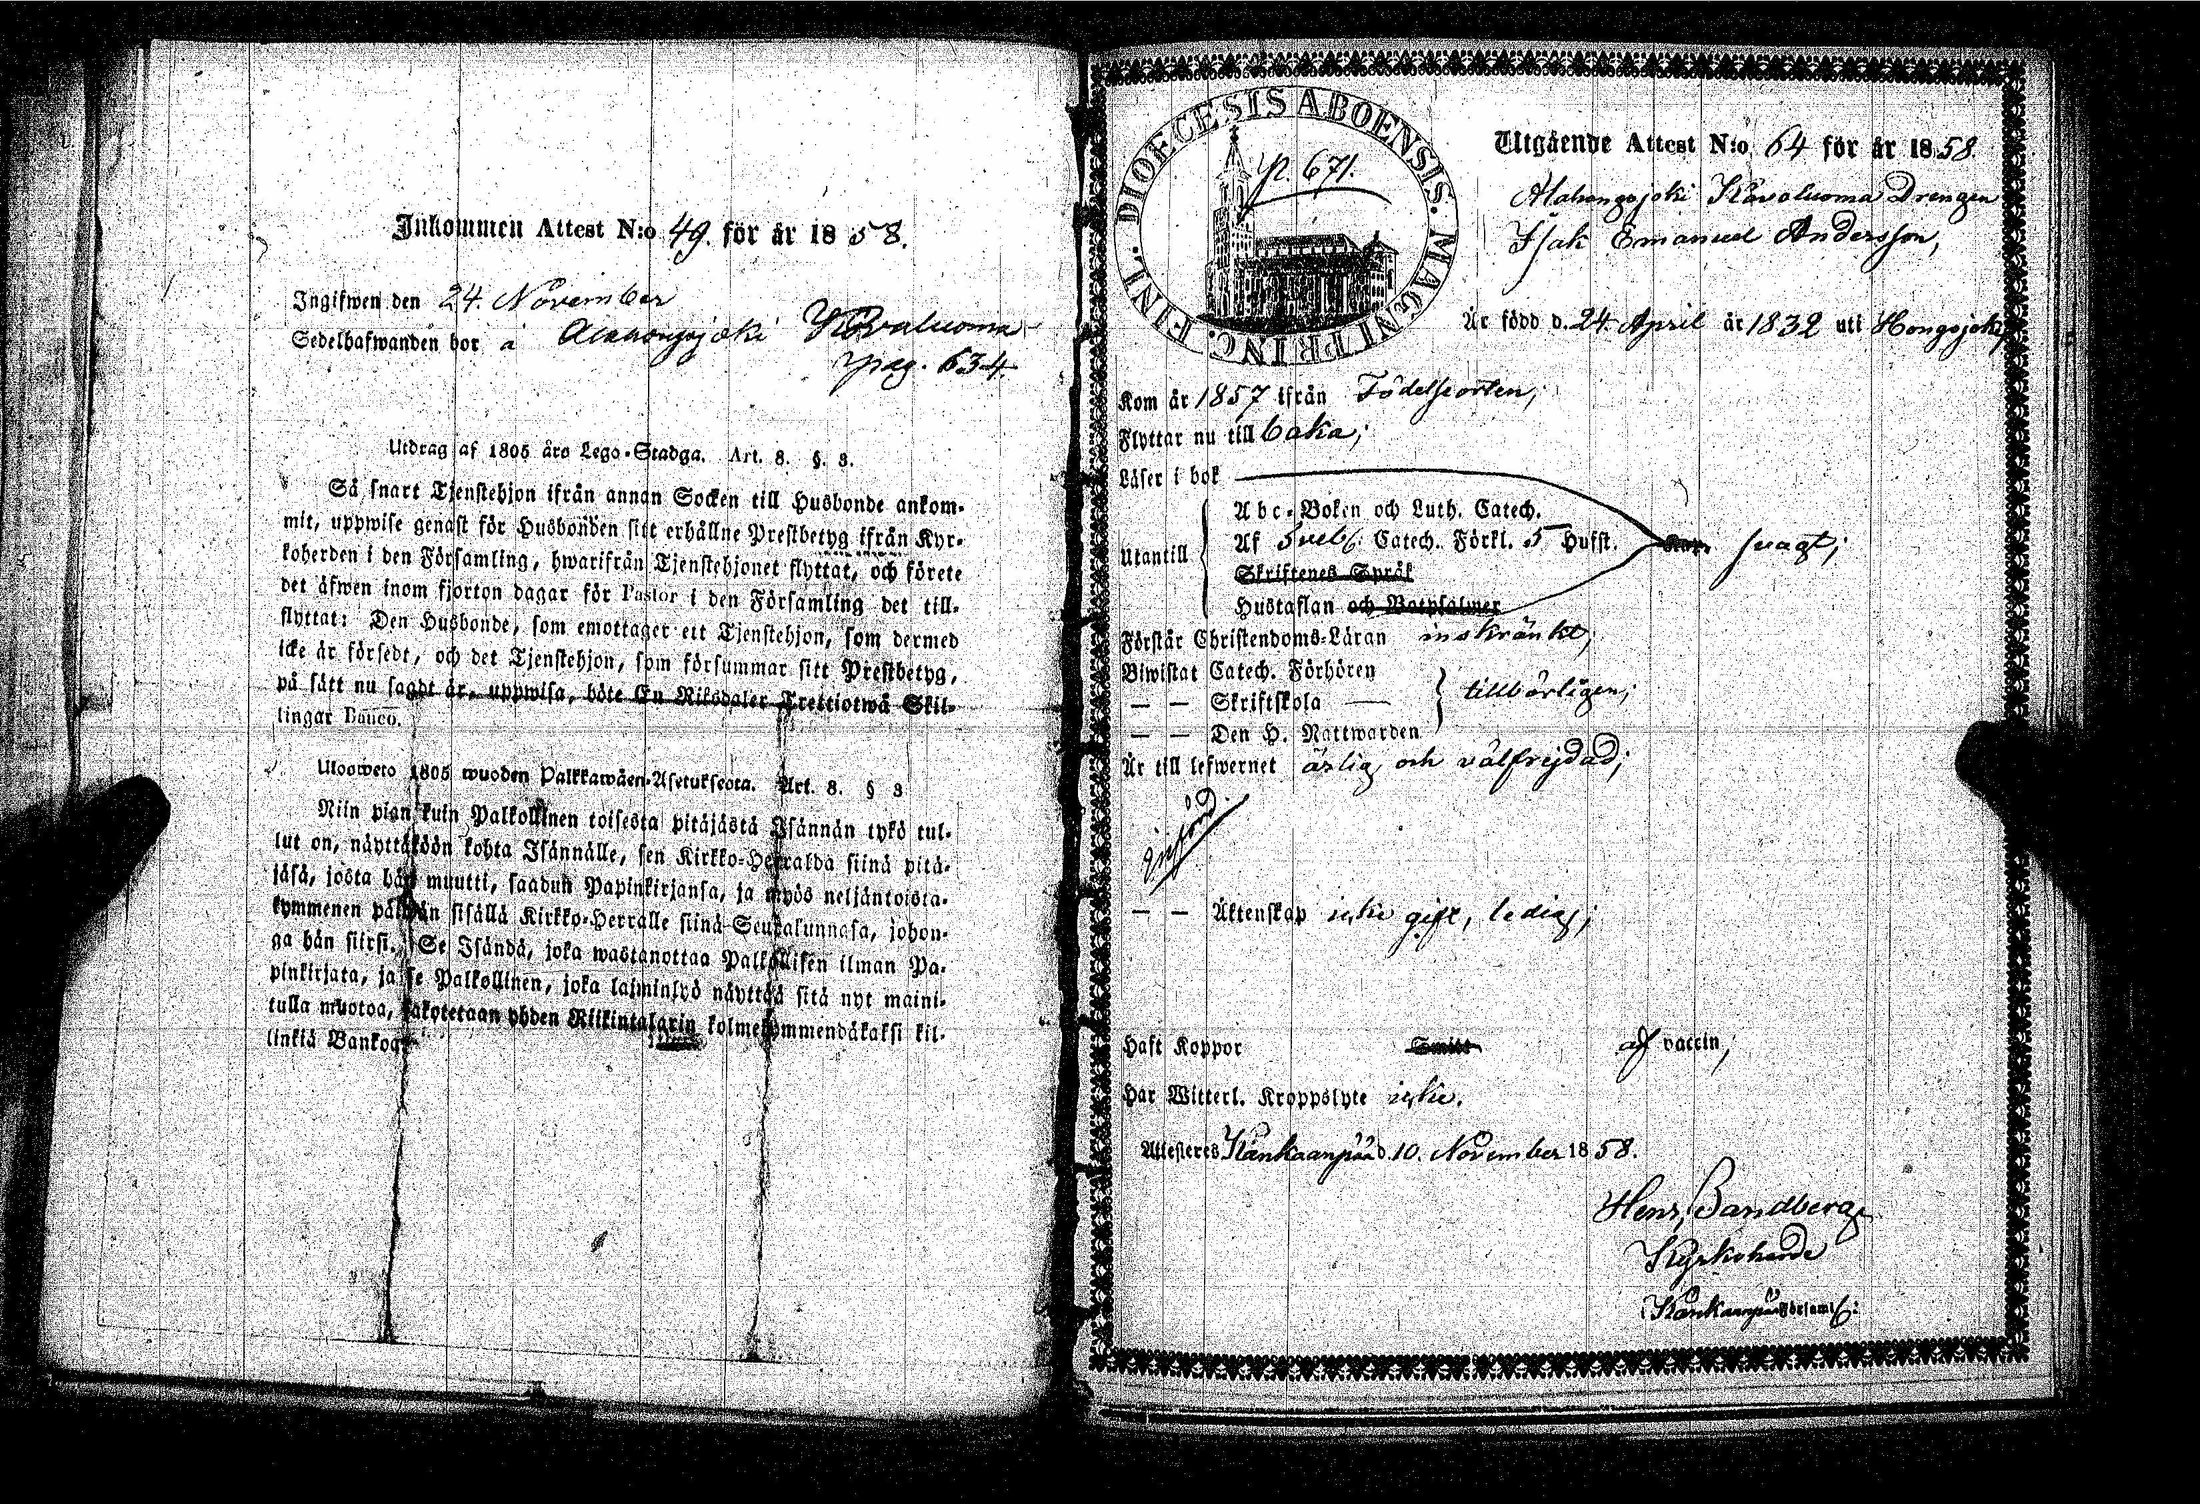 Inkommen Attest N:o 49. för år 1858.
Ingifwen den 24. November
Sedelhafwanden bor å Alahongojoki Kåvaluoma
pag. 634.
Utdrag af 1805 års Lego-Stadga. Art. 8. §. 3.
Så snart Tjenstehjon ifrån annan Socken till Husbonde ankom-
mit, uppwise genast för Husbonden sitt erhållne Prestbetyg ifrån Kyr-
koherden i den Församling, hwarifrån Tjenstehjonet flyttat, och förete
det äfwen inom fjorton dagar för Pastor i den Församling det till-
flyttat: Den Husbonde, som emottager ett Tjenstehjon, som dermed
icke är försedt, och det Tjenstehjon, som försummar sitt Prestbetyg,
på sätt nu sagdt är, uppwisa, böte En Riksdaler Trettiotwå Skil-
lingar Banco.
Ulosweto 1805 wuoden Palkkawäen-Asetuksesta. Art. 8. § 3
Niin pian kuin Palkollinen toisesta pitäjästä Isännän tykö tul-
lut on, näyttäköön kohta Isännälle, sen Kirkko-Herralda siinä pitä-
jäsä, josta hän muutti, saadun Papinkirjansa, ja myös neljäntoista-
kymmenen päiwän sisällä Kirkko-Herralle siinä Seurakunnasa, johon-
ga hän siirsi. Se Isändä, joka wastanottaa Palkollisen ilman Pa-
pinkirjata, ja se Palkollinen, joka laiminlyö näyttää sitä nyt maini-
tulla muotoa, sakotetaan yhden Riikintalarin kolmekymmendäkaksi kil-
linkiä Bankoa.
DIOECESIS ABOENSIS. MAGNI PRINC. FINL.
p. 671.
Utgående Attest N:o 64 för år 1858.
Alahongojoki Kåvaluoma Drengen
Isak Emanuel Andersson,
Är född d. 24. April år 1832 uti Hongojoki,
Kom år 1857 ifrån Födelseorten,
Flyttar nu till baka;
Läser i bok
Abc-Boken och Luth. Catech.
Utantill Af Sveb. Catech. Förkl. 5 Hufst. svagt;
Skriftenes Språk
Hustaflan och Botpsalmer
Förstår Christendoms-Läran inskränkt;
Biwistat Catech. Förhören
— — Skriftskola — tillbörligen;
— — Den H. Nattwarden
Är till lefwernet ärlig och välfrejdad;
införd
— — Äktenskap icke gift, ledig;
Haft Koppor Smitt af vaccin,
Har Witterl. Kroppslyte icke.
Attesteres Kankaanpää d. 10. November 1858.
Henr. Sandberg
Kyrkoherde
Kankaanpää Församl: